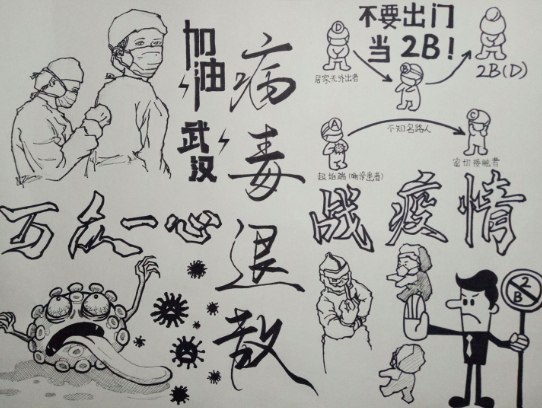 加油
武汉
病毒退散
不要出门
当2B!
D
B
2B(D)
居家无外出者
A
不知名路人
密切接触者
战疫情
万众一心
2
B